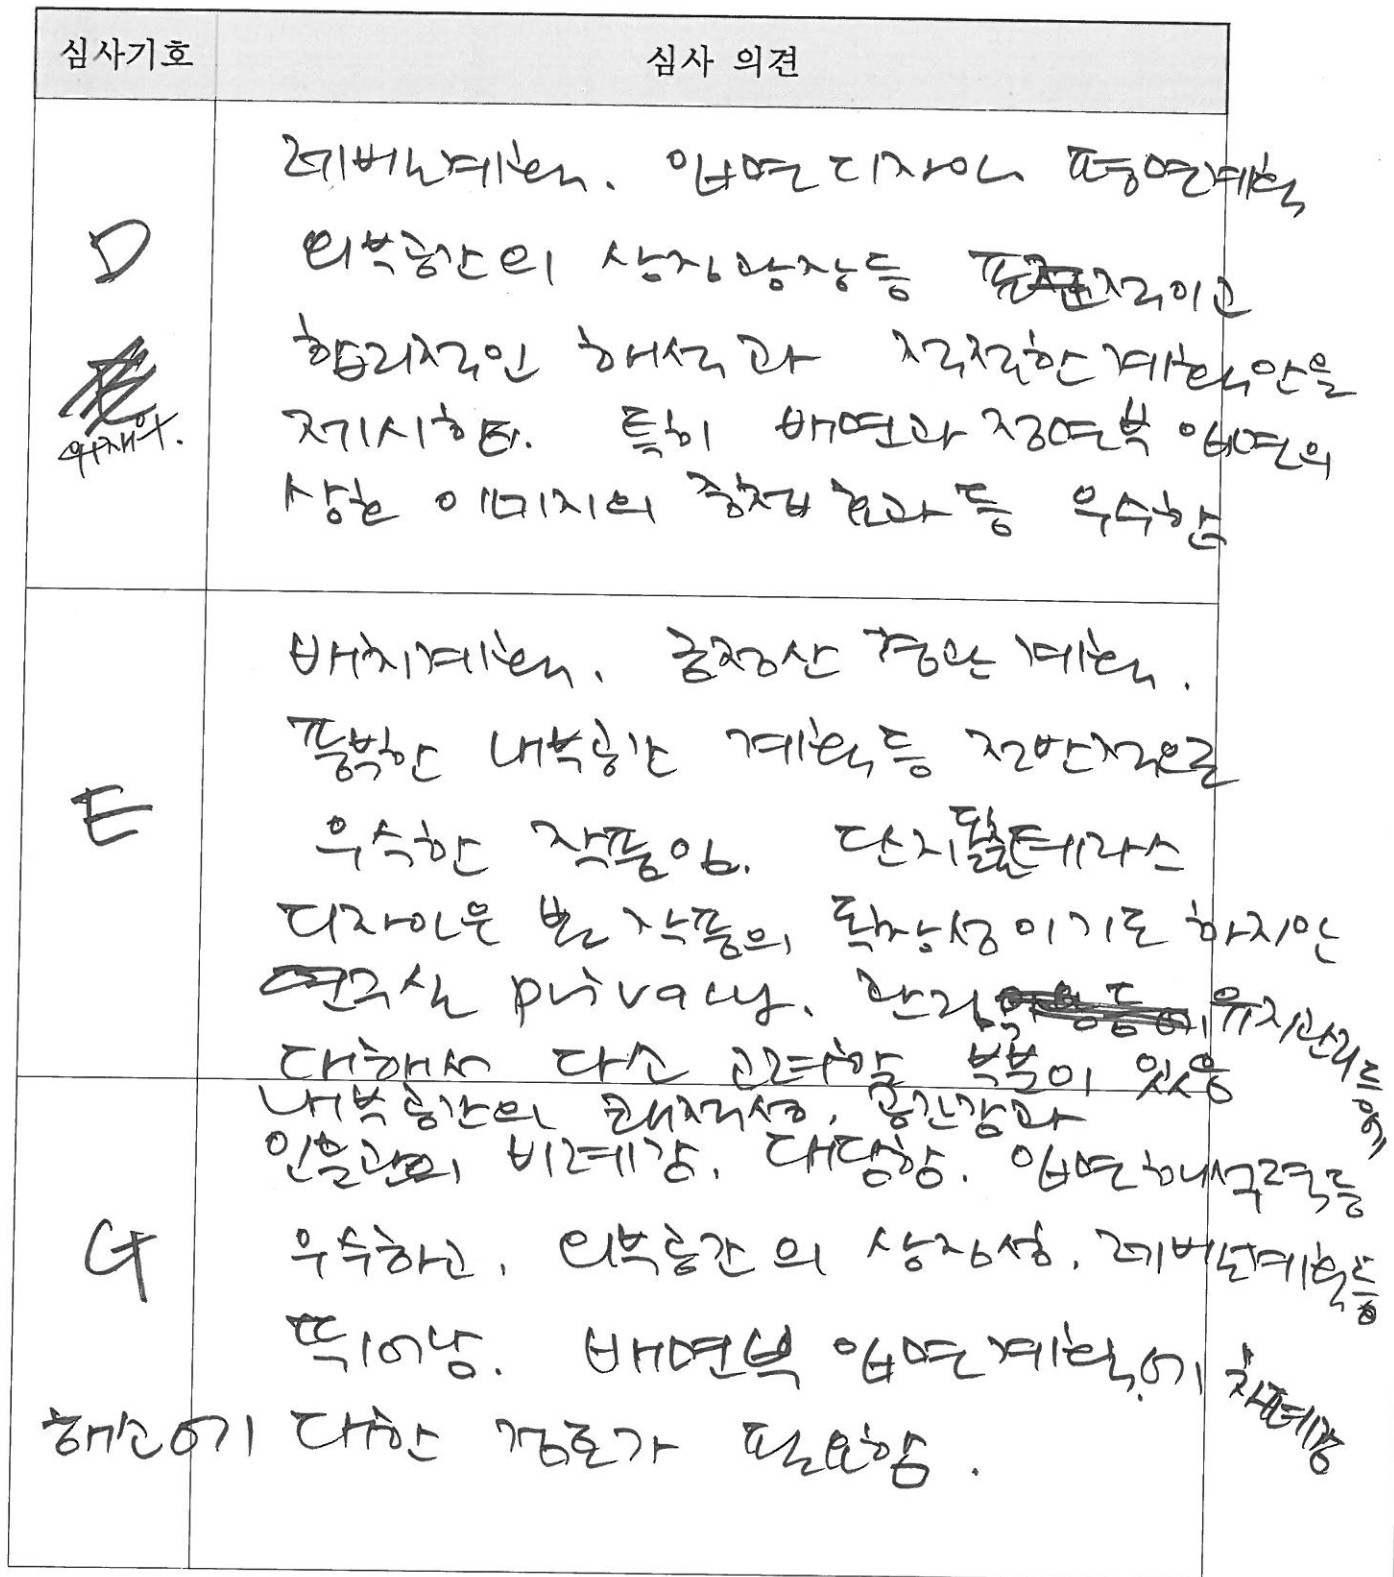 심사기호
심사 의견
D
레벨계획. 입면디자인 평면계획
외부공간의 상징광장등 표준적이고
합리적인 해석과 적절한 계획안을
제시함. 특히 배면과 정면부 입면의
상호 이미지의 중첩효과등 우수함
E
배치계획. 금정산 경관계획.
풍부한 내부공간 계획등 전반적으로
우수한 작품임. 단지 돌출테라스
디자인은 본 작품의 독창성이기도 하지만
연구실 privacy. 유지관리등에
대해서 다소 고려할 부분이 있음
G
내부공간의 쾌적성, 공간감과
인물관의 비례감. 대담함. 입면해석력등
우수하고, 외부공간의 상징성, 레벨계획등
뛰어남. 배면부 입면계획에 차폐감
해소에 대한 검토가 필요함.